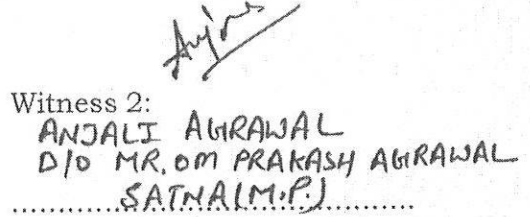 Witness 2:
ANJALI AGRAWAL
D/O MR. OM PRAKASH AGRAWAL
SATNA (M.P.)